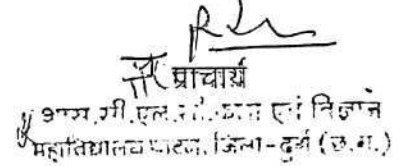 प्राचार्य
शास. सी.एल.सी. कला एवं विज्ञान
महाविद्यालय पाटन, जिला-दुर्ग (छ.ग.)